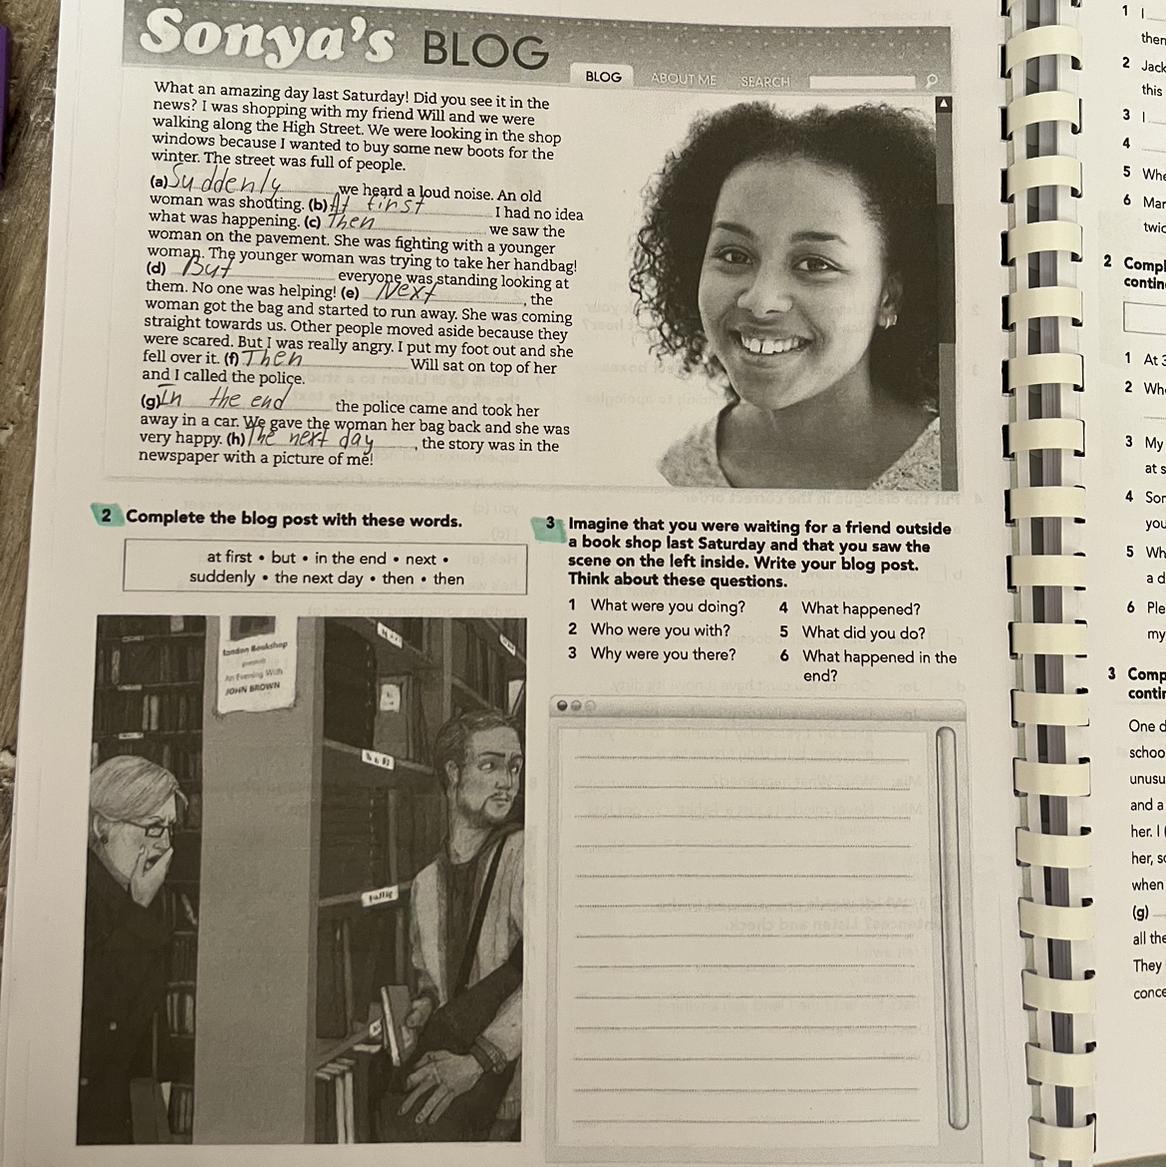 Sonya's BLOG
BLOG ABOUT ME SEARCH
What an amazing day last Saturday! Did you see it in the
news? I was shopping with my friend Will and we were
walking along the High Street. We were looking in the shop
windows because I wanted to buy some new boots for the
winter. The street was full of people.
(a) Suddenly we heard a loud noise. An old
woman was shouting. (b) At first I had no idea
what was happening. (c) Then we saw the
woman on the pavement. She was fighting with a younger
woman. The younger woman was trying to take her handbag!
(d) But everyone was standing looking at
them. No one was helping! (e) Next, the
woman got the bag and started to run away. She was coming
straight towards us. Other people moved aside because they
were scared. But I was really angry. I put my foot out and she
fell over it. (f) Then Will sat on top of her
and I called the police.
(g) In the end the police came and took her
away in a car. We gave the woman her bag back and she was
very happy. (h) The next day, the story was in the
newspaper with a picture of me!
2 Complete the blog post with these words.
at first • but • in the end • next •
suddenly • the next day • then • then
London Bookshop
presents
An Evening With
JOHN BROWN
3 Imagine that you were waiting for a friend outside
a book shop last Saturday and that you saw the
scene on the left inside. Write your blog post.
Think about these questions.
1 What were you doing?
2 Who were you with?
3 Why were you there?
4 What happened?
5 What did you do?
6 What happened in the
end?
1 I
then
2 Jack
this
3 I
4
5 Whe
6 Mar
twic
2 Compl
contin
1 At 3
2 Wh
3 My
at s
4 Son
you
5 Wh
a d
6 Ple
my
3 Comp
contin
One d
schoo
unusu
and a
her. I
her, so
when
(g)
all the
They
conce